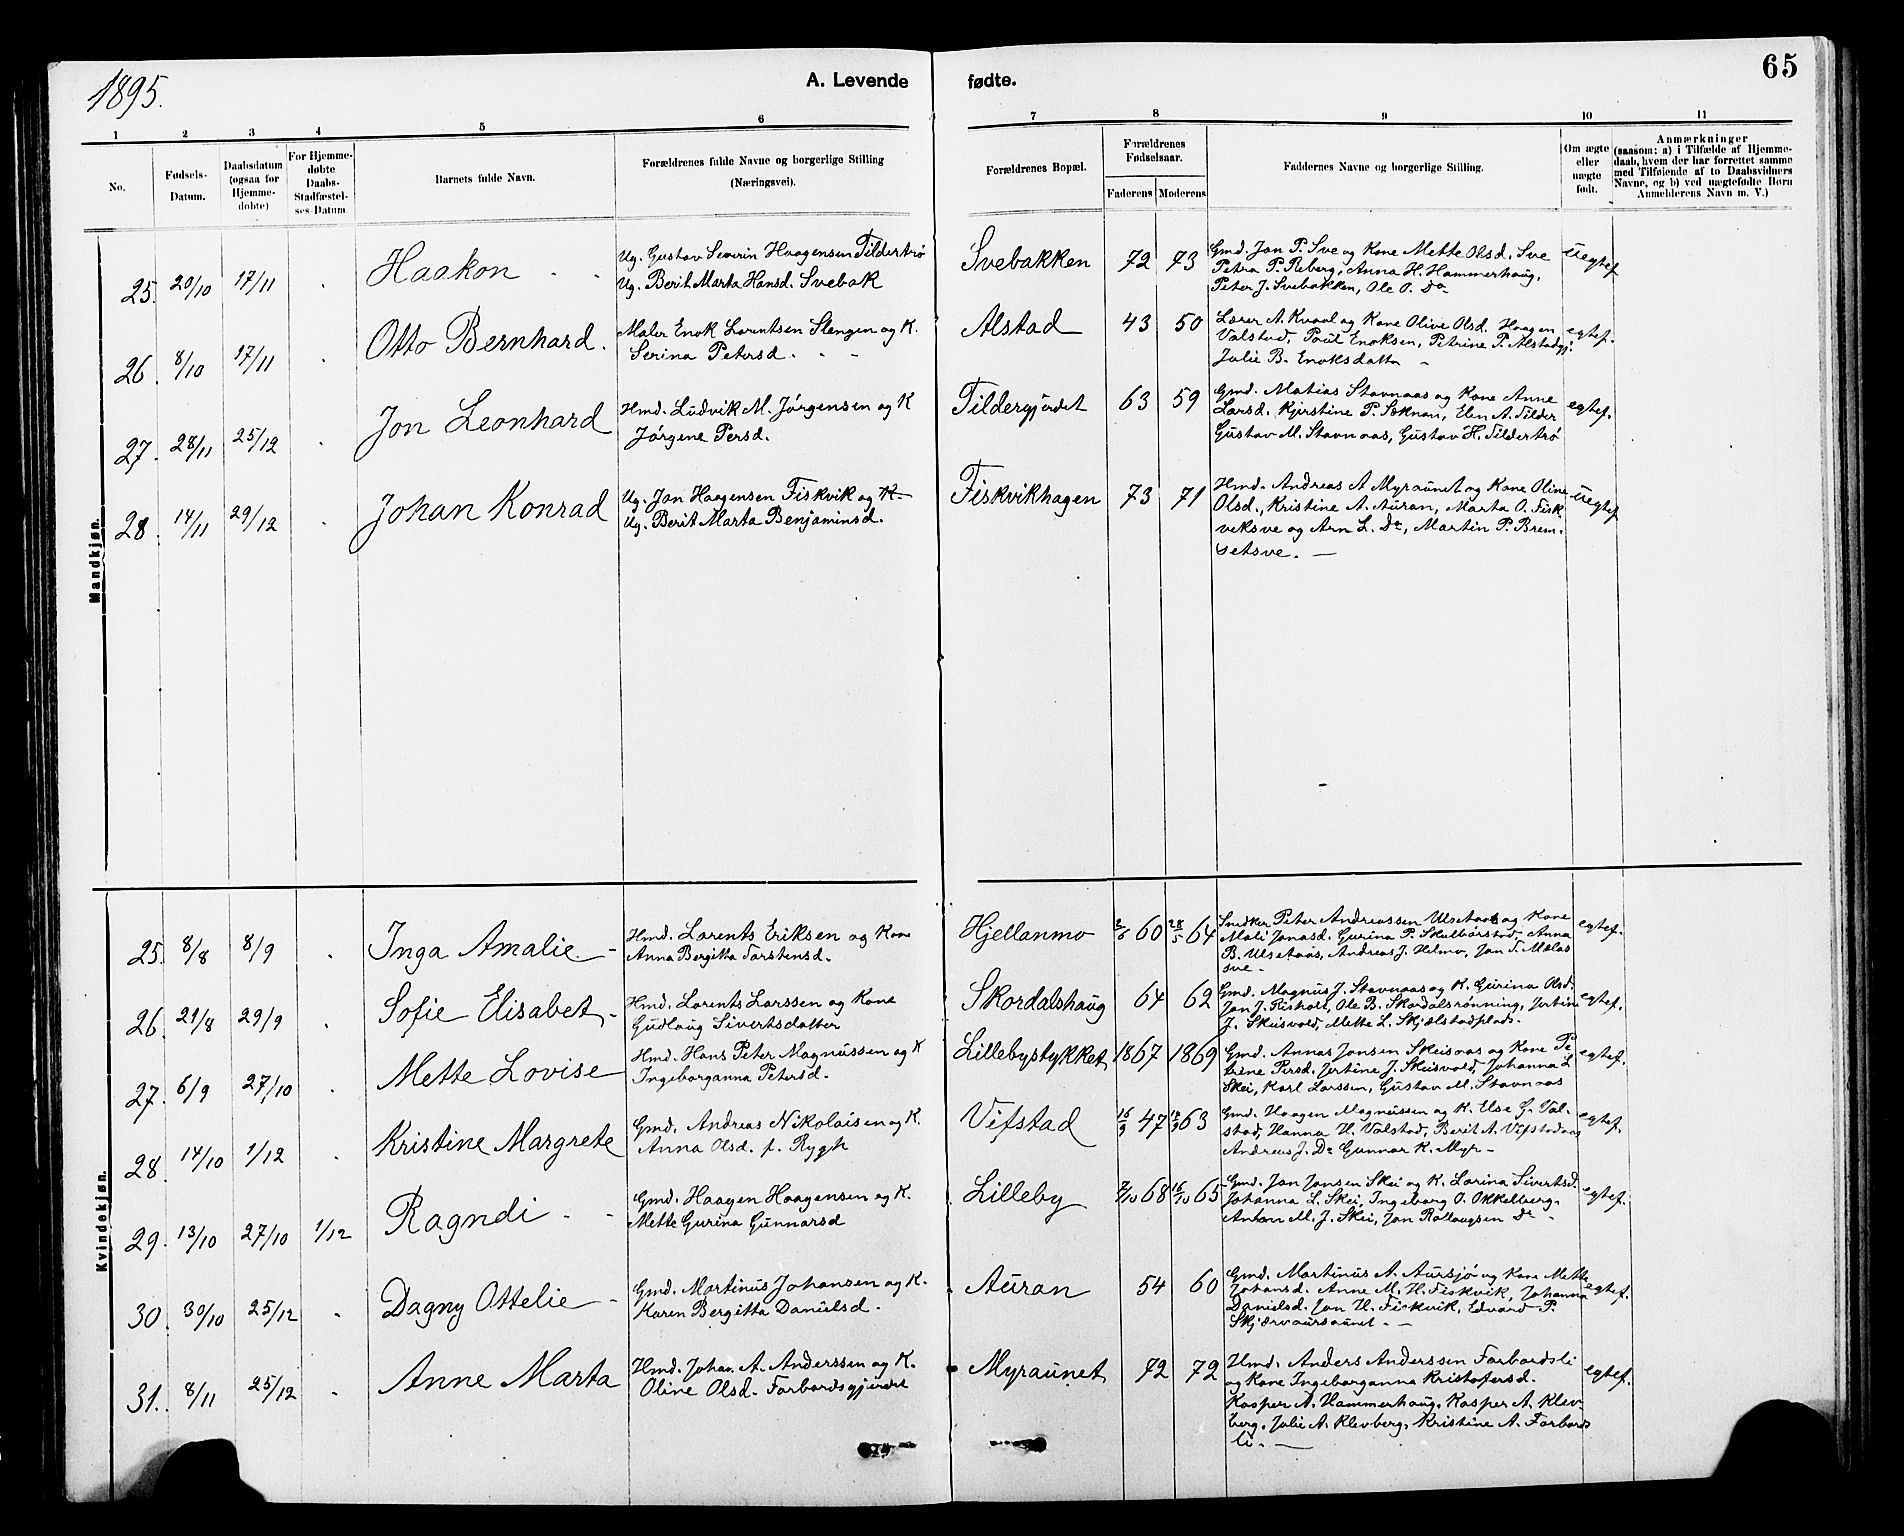 1895.
A. Levende fødte.
65
1 2 3 4 5 6 7 8 9 10 11
No.
Fødsels-
Datum.
Daabsdatum
(ogsaa for
Hjemme-
døbte)
For Hjemme-
døbte
Daabs-
Stadfæstel-
ses-Datum.
Barnets fulde Navn.
Forældrenes fulde Navne og borgerlige Stilling
(Næringsvei).
Forældrenes Bopæl.
Forældrenes
Fødselsaar.
Faderens Moderens
Faddernes Navne og borgerlige Stilling.
Om ægte
eller
uægte
født.
Anmærkninger
(saasom: a) i Tilfælde af Hjemme-
daab, hvem der har forrettet samme
med Tilføiende af to Daabsvidners
Navne, og b) ved uægtefødte Børn
Anmelderens Navn m. V.)
Mandkjøn.
25. 20/10 17/11 Haakon
Ug. Gustav Severin Haagensen Tildertrø
Ug. Berit Marta Hansd. Svebak
Svebakken 72 73
Gmd. Jon P. Sve og Kone Mette Olsd. Sve
Petra P. Reberg, Anna H. Hammerhaug,
Peter J. Svebakken, Ole O. Do
Uegtef
26. 8/10 17/11 Otto Bernhard.
Maler Enok Lorentsen Slengen og K.
Serina Petersd.
Alstad 43 50
Lærer A. Kvaal og Kone Olive Olsd. Haagen
Valstad, Paul Enoksen, Petrine P. Alstad
Julie B. Enoksdatter
egtef.
27. 28/11 25/12 Jon Leonhard
Hmd. Ludvik M. Jörgensen og K
Jörgine Persd.
Tildergjerdet 63 59
Gmd. Matias Stavnaas og Kone Anne
Larsd. Kjerstine P. Soknan, Elen A. Tilder
Gustav M. Stavnaas, Gustav H. Tildertrø
egtef.
28. 14/11 29/12 Johan Konrad
Ug. Jon Haagensen Fiskvik og K
Ug. Berit Marta Benjaminsd.
Fiskvikhagen 73 71
Hmd. Andreas A Myraunet og Kone Oline
Olsd., Kristine A. Auran, Marta O. Fisk-
viksve og Arn L. Do, Martin P. Brem-
setsve.
Uegtef
Kvindekjøn.
25. 8/8 8/9 Inga Amalie
Hmd. Lorents Eriksen og Kone
Anna Bergitta Torstensd.
Hjellanmo 2/6 60 28/5 64
Snedker Peter Andreassen Ulsetaas og Kone
Mali Jonasd. Gurina P. Skulbørstad, Anna
B. Ulsetaas, Andreas J. Helmo, Jon T. Mælas
sve
egtef.
26. 21/8 29/9 Sofie Elisabet
Hmd. Lorents Larssen og Kone
Gudlaug Sivertsdatter
Skordalshaug 64 62
Gmd. Magnus J. Stavnaas og K. Gurina Olsd.
Jon J. Fishall, Ole B. Skordalsrønning, Jertine
J. Skeisvold, Mette L. Skjelstadplads.
egtef.
27. 6/9 27/10 Mette Lovise
Hmd. Hans Peter Magnussen og K
Ingeborganna Petersd.
Lillebystykket 1867 1869
Gmd. Annas Jonsen Skeisaas og Kone Pe-
trine Persd. Jertine J. Skeisvold, Johanna L
Skei, Karl Larssen, Gustav M. Stavnaas
egtef.
28. 14/10 1/12 Kristine Margrete
Gmd. Andreas Nikolaisen og K.
Anna Olsd. f. Rygh
Vifstad 16/9 47 63
Gmd. Haagen Magnussen og K. Else G. Val-
stad, Hanna H. Valstad, Berit A. Vifstadaas
Andreas J. Do Gunnar K. Myr
egtef.
29. 13/10 27/10 1/12 Ragndi
Gmd. Haagen Haagensen og K.
Mette Gurina Gunnarsd
Lilleby 2/10 68 16/10 65
Gmd. Jon Jonsen Skei og K. Lorina Sivertsd.
Johanna L. Skei, Ingeborg O. Okkelberg.
Anton M. J. Skei, Jon Rollaugsen Do
egtef.
30. 30/10 25/12 Dagny Ottelie
Gmd. Martinus Johansen og K.
Karen Bergitta Danielsd.
Auran 54 60
Gmd. Martinus A. Aursjö og Kone Mette
Johansd. Anne M. H. Fiskvik, Johanna
Danielsd. Jon H. Fiskvik, Edvard P.
Skjærvaursaunet.
egtef.
31. 8/11 25/12 Anne Marta
Hmd. Johan A. Anderssen og K.
Oline Olsd. Forbordsgjerdet
Myraunet 72 72
Hmd. Anders Anderssen Forbordsli
og Kone Ingeborganna Kristofersd.
Kasper A. Hammerhaug, Kasper A. Klev-
berg, Julie A. Klevberg, Kristine A. Forbords
li.
egtef.